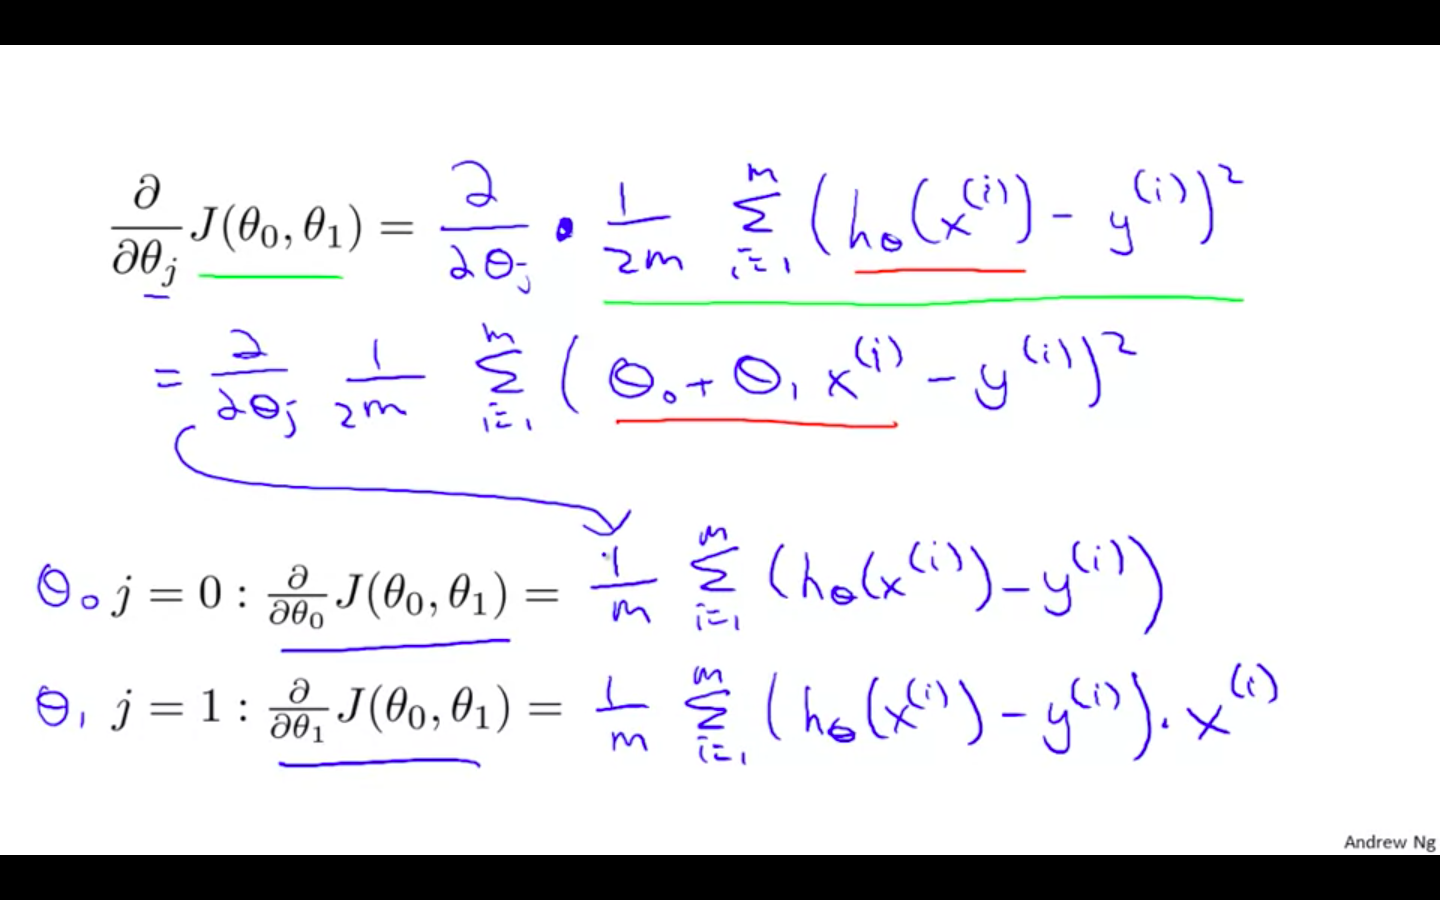 ∂/∂θ_j J(θ₀, θ₁) = ∂/∂θ_j · 1/2m ∑_{i=1}^{m} (h_θ(x^{(i)}) - y^{(i)})²
= ∂/∂θ_j 1/2m ∑_{i=1}^{m} (θ₀ + θ₁ x^{(i)} - y^{(i)})²
θ₀ j = 0 : ∂/∂θ₀ J(θ₀, θ₁) = 1/m ∑_{i=1}^{m} (h_θ(x^{(i)}) - y^{(i)})
θ₁ j = 1 : ∂/∂θ₁ J(θ₀, θ₁) = 1/m ∑_{i=1}^{m} (h_θ(x^{(i)}) - y^{(i)}) · x^{(i)}
Andrew Ng